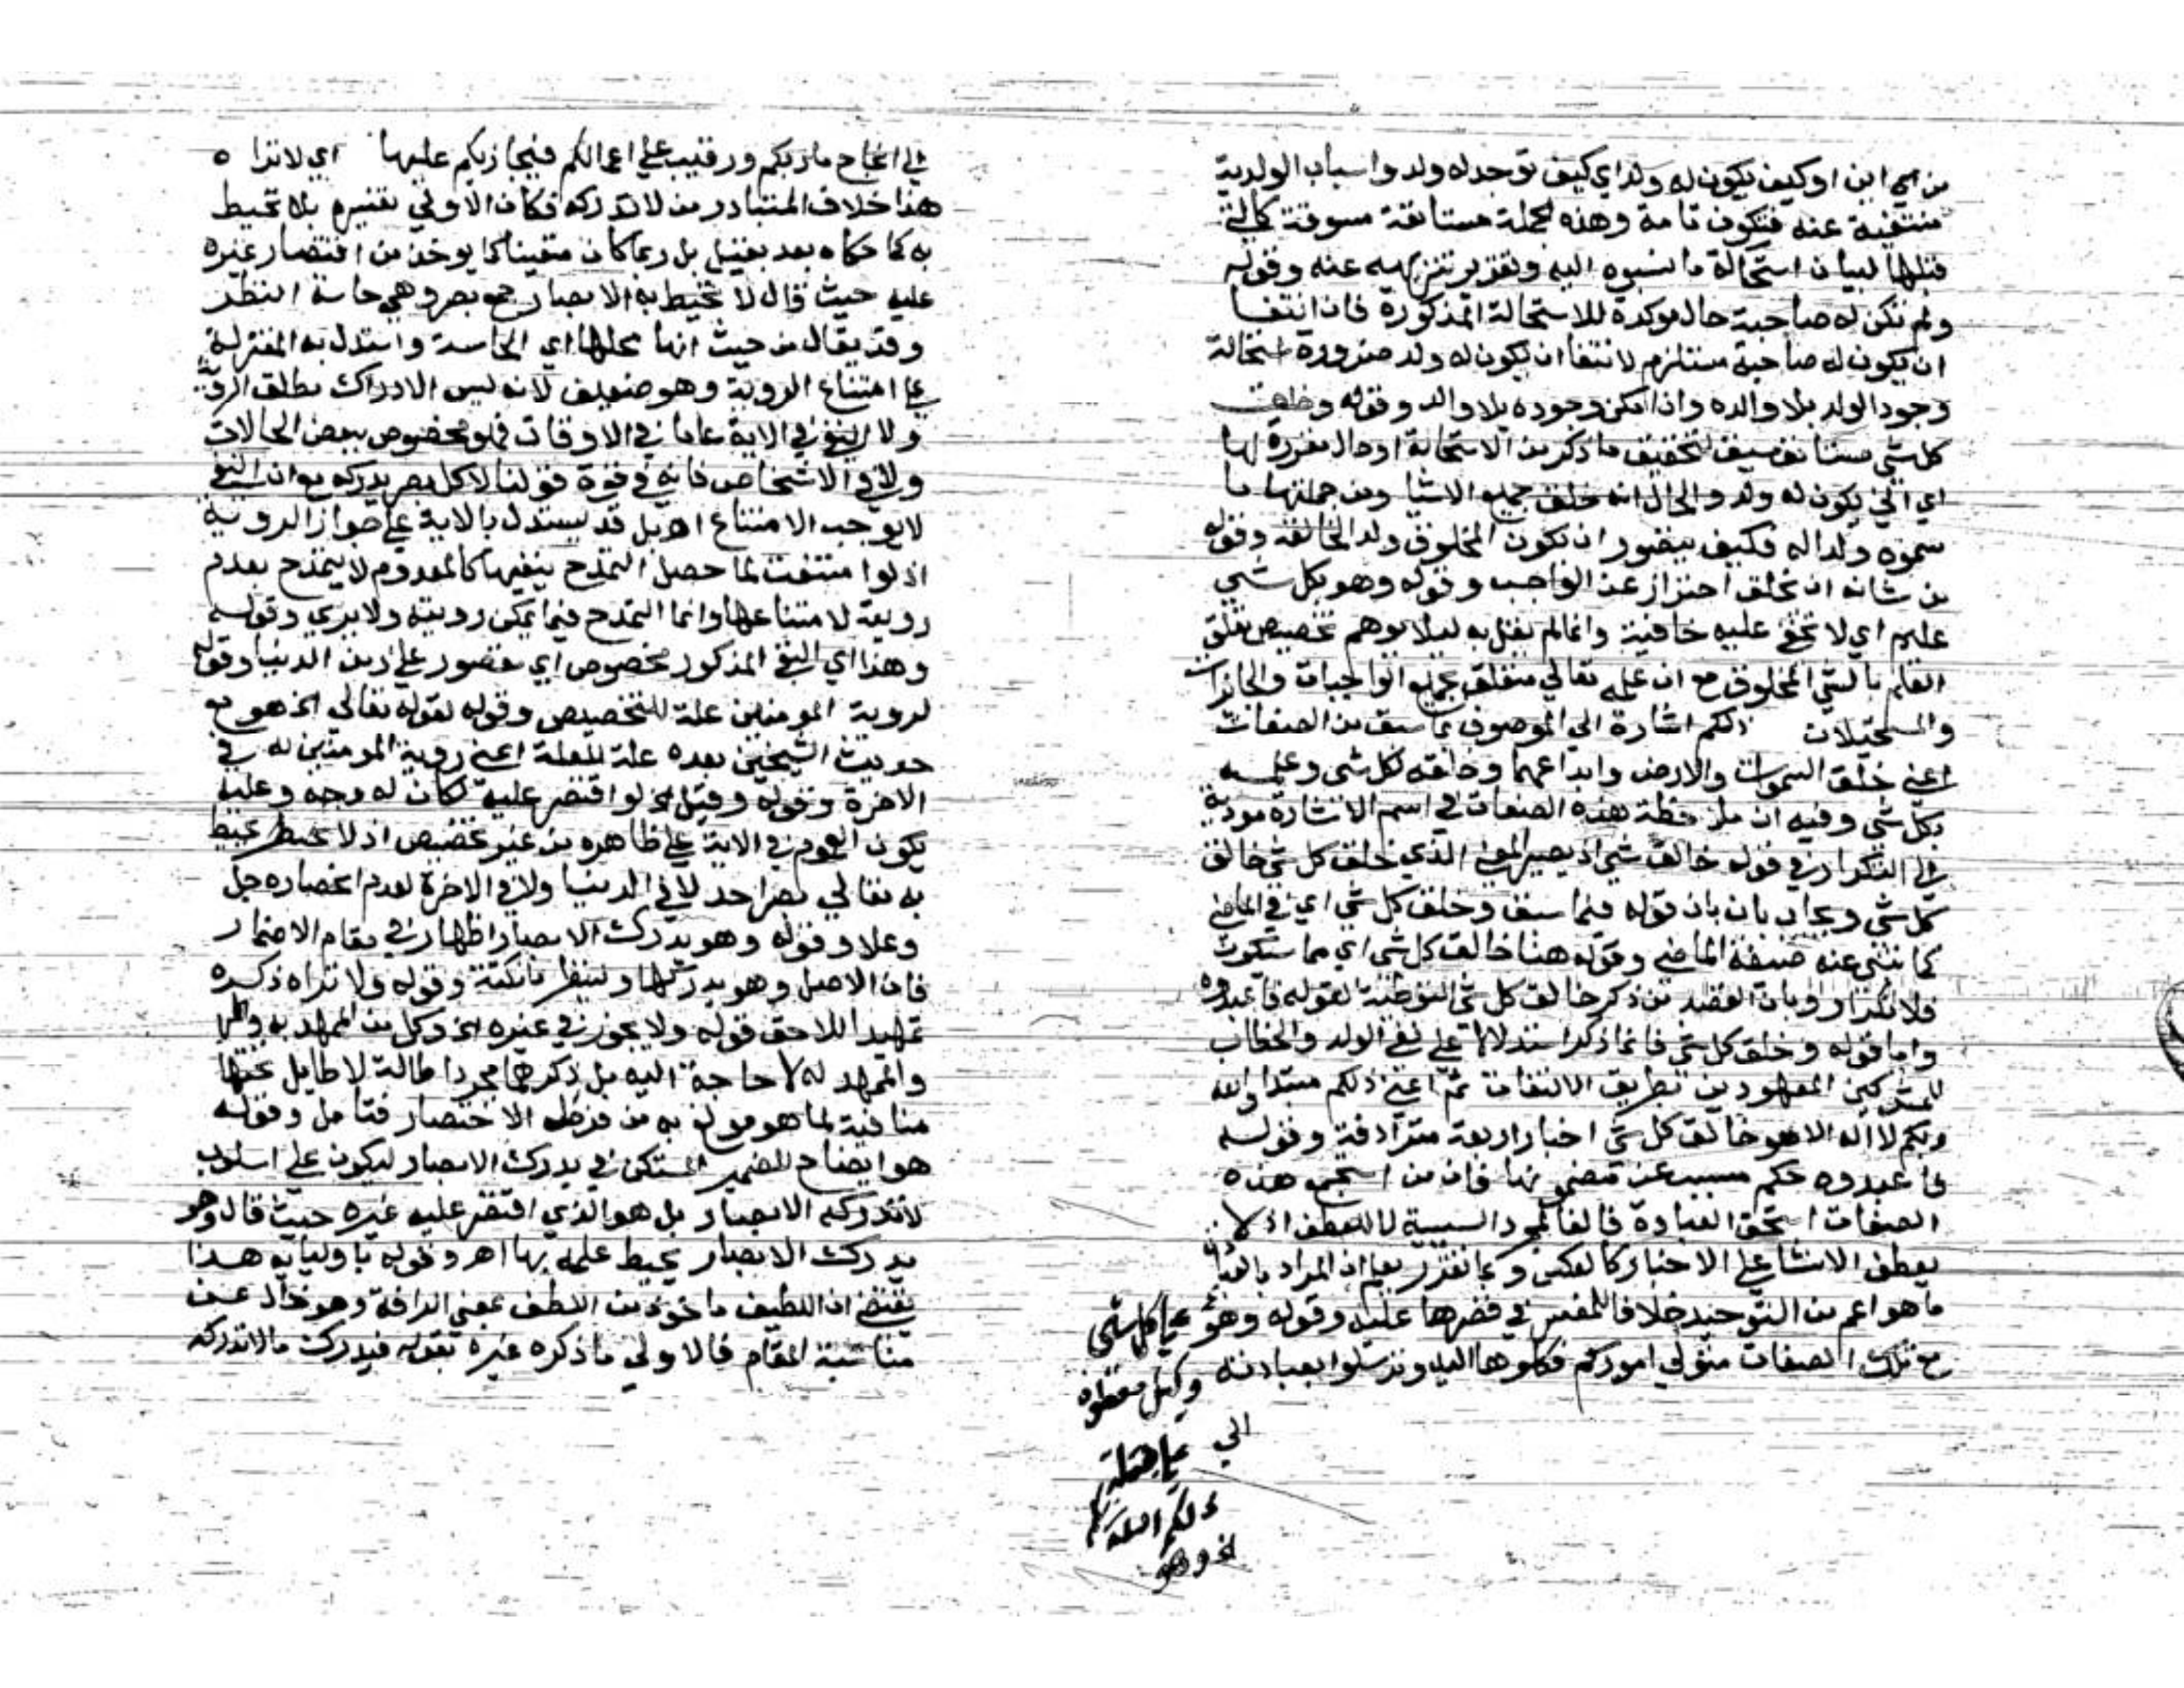 من اي ابن او كيف يكون له ولد اي كيف توجد له ولد واسباب الولدية
منتفية عنه فتكون تامة وهذه الجملة مستانفة مسوقة كالتي
قبلها لبيان استحالة ما نسبوه اليه وتقرير تنزيهه عنه وقوله
ولم تكن له صاحبة حال موكدة للاستحالة المذكورة فان انتفا
ان يكون له صاحبة مستلزم لانتفا ان يكون له ولد ضرورة استحالة
وجود الولد بلا والده وان امكن وجوده بلا والد وقوله وخلق
كل شي مستانف سيق لتحقيق ما ذكر من الاستحالة او حال مقررة لها
اي اني يكون له ولد والحال انه خلق جميع الاشيا ومن جملتها ما
سموه ولدا له فكيف يتصور ان يكون المخلوق ولدا لخالقه وقوله
من شانه ان يخلق احتراز عن الواجب وقوله وهو بكل شي
عليم اي لا تخفي عليه خافية وانما لم يقل به ليلا يوهم تخصيص تعلق
العلم بالشي المخلوق مع ان علمه تعالي متعلق بجميع الواجبات والجائزات
والمستحيلات ذلكم اشارة الي الموصوف بما سبق من الصفات
اعني خلق السموات والارض وابداعهما وخلقه لكل شي وعلمه
بكل شي وفيه ان ملاحظة هذه الصفات في اسم الاشارة مودية
الي التكرار في قوله خالق شي اذ يصير المعني الذي خلق كل شي خالق
كل شي ويجاب بان بان قوله فيما سبق وخلق كل شي اي في الماضي
كما تنبي عنه صيغة الماضي وقوله هنا خالق كل شي اي مما سيكون
فلا تكرار وبان القصد من ذكر خالق كل شي التوطية لقوله فاعبدوه
واما قوله وخلق كل شي فانما ذكر استدلالا علي نفي الولد والخطاب
للمشركين المعهودين بطريق الالتفات ثم اعني ذلكم مبتدا والله
ربكم لا اله الا هو خالق كل شي اخبار اربعة مترادفة وقوله
فاعبدوه حكم مسبب عن مضمونها فان من استجمع هذه
الصفات استحق العبادة فالفا لمجرد السببية لا للعطف اذ لا
يعطف الانشا علي الاخبار كالعكس وبما تقرر يعلم ان المراد بالعبادة
ما هو اعم من التوحيد خلافا للمفسر في قصرها عليه وقوله وهو علي كل شي
مع تلك الصفات متولي اموركم فكلوها اليه وتوسلوا بعبادته
وكيل معطوف
الي علي جملة
ذلكم الله ربكم
اخ وهو
الي انجاح ماربكم ورقيب علي اعمالكم فيجازيكم عليها اي لا تراه
هذا خلاف المتبادر من لا تدركه فكان الاولي تفسيره بلا تحيط
به كما حكاه بعد بقيل بل ربما كان متعينا كما يوخذ من اقتصار غيره
عليه حيث قال لا تحيط به الابصار جمع بصر وهي حاسة النظر
وقد يقال من حيث انها محلها اي الحاسة واستدل به المعتزلة
علي امتناع الروية وهو ضعيف لانه ليس الادراك مطلق الروية
ولا النفي في الاية عاما في الاوقات فلعله مخصوص ببعض الحالات
ولا في الاشخاص فانه في قوة قولنا لا كل بصر يدركه مع ان النفي
لا يوجب الامتناع اه بل قد يستدل بالاية علي جواز الروية
اذ لو امتنعت لما حصل التمدح بنفيها كالمعدوم لا يتمدح بعدم
رويته لامتناعها وانما التمدح فيما يمكن رويته ولا يري وقوله
وهذا اي النفي المذكور مخصوص اي مقصور علي زمن الدنيا وقوله
لروية المومنين علة للتخصيص وقوله لقوله تعالي اخ هو مع
حديث الشيخين بعده علة للعلة اعني روية المومنين له في
الاخرة وقوله وقيل اخ لو اقتصر عليه لكان له وجه وعليه
يكون العموم في الاية علي ظاهره من غير تخصيص اذ لا يحيط
به تعالي بصر احد لا في الدنيا ولا في الاخرة لعدم انحصاره جل
وعلا وقوله وهو يدرك الابصار اظهار في مقام الاضمار
فان الاصل وهو يدركها ولينظر ما نكتة وقوله ولا تراه ذكره
تمهيدا للاحق قوله ولا يجوز في غيره اخ وكل من الممهد به
والممهد له لا حاجة اليه بل ذكرهما مجرد اطالة لا طايل تحتها
منافية لما هو مولع به من فرط الاختصار فتامل وقوله
هو ايضاح للضمير المستكن في يدرك الابصار ليكون علي اسلوب
لا تدركه الابصار بل هو الذي اقتصر عليه غيره حيث قال وهو
يدرك الابصار يحيط علمه بها اهـ وقوله باوليايه هذا
يقتضي ان اللطيف ماخوذ من اللطف بمعني الرافة وهو خال عن
مناسبة المقام فالاولي ما ذكره غيره بقوله فيدرك ما لا تدركه